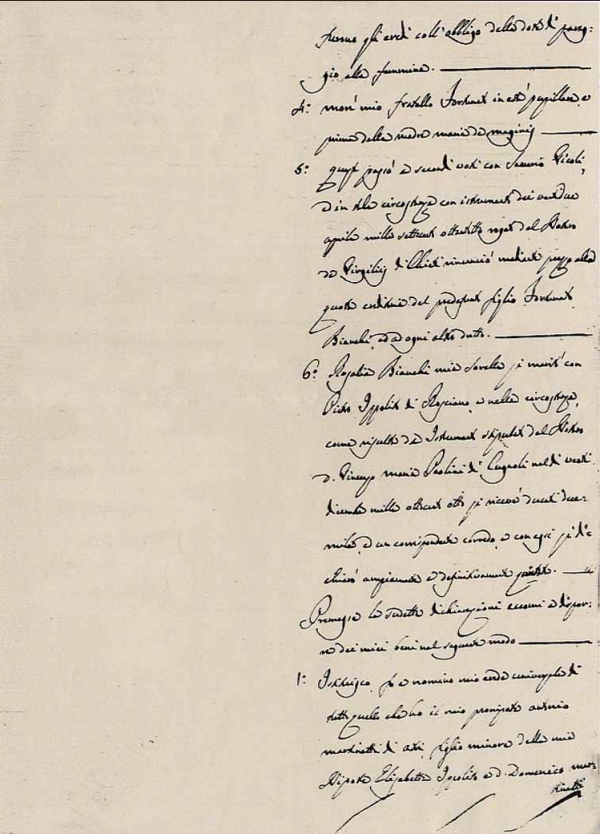 furono gli eredi coll'obbligo della dote di parag-
gio alle femmine.
4° morì mio fratello Fortunato in età pupillare, e
prima della madre Maria de
5° questa passò a secondi voti con Saverio Vicoli,
ed in tale circostanza con istrumento dei ventidue
aprile mille settecento ottantotto rogato dal Notar
de Virgiliis di Chieti rinunciò mediante prezzo alla
quota ereditaria del predefunto figlio Fortunato
Bianchi, ed ad ogni altro dritto.
6° Rosalia Bianchi mia sorella si maritò con
Pietro Ippoliti di Rosciano, e nella circostanza,
come risulta da Istrumento stipulato dal Notar
D. Vincenzo Maria Paolini di Cugnoli nel dì venti
dicembre mille ottocento otto si ricevè ducati due-
mila, ed un corrispondente corredo, e con essi si di-
chiarò ampiamente e definitivamente
Premesse le sudette dichiarazioni eccomi a dispor-
re dei miei beni nel seguente modo
1° Istituisco, fo e nomino mio erede universale di
tutto quello che ho il mio pronipote Antonio
Martinetti di Atri, figlio minore della mia
Nipote Elisabetta Ippoliti e d. Domenico Mar-
tinetti